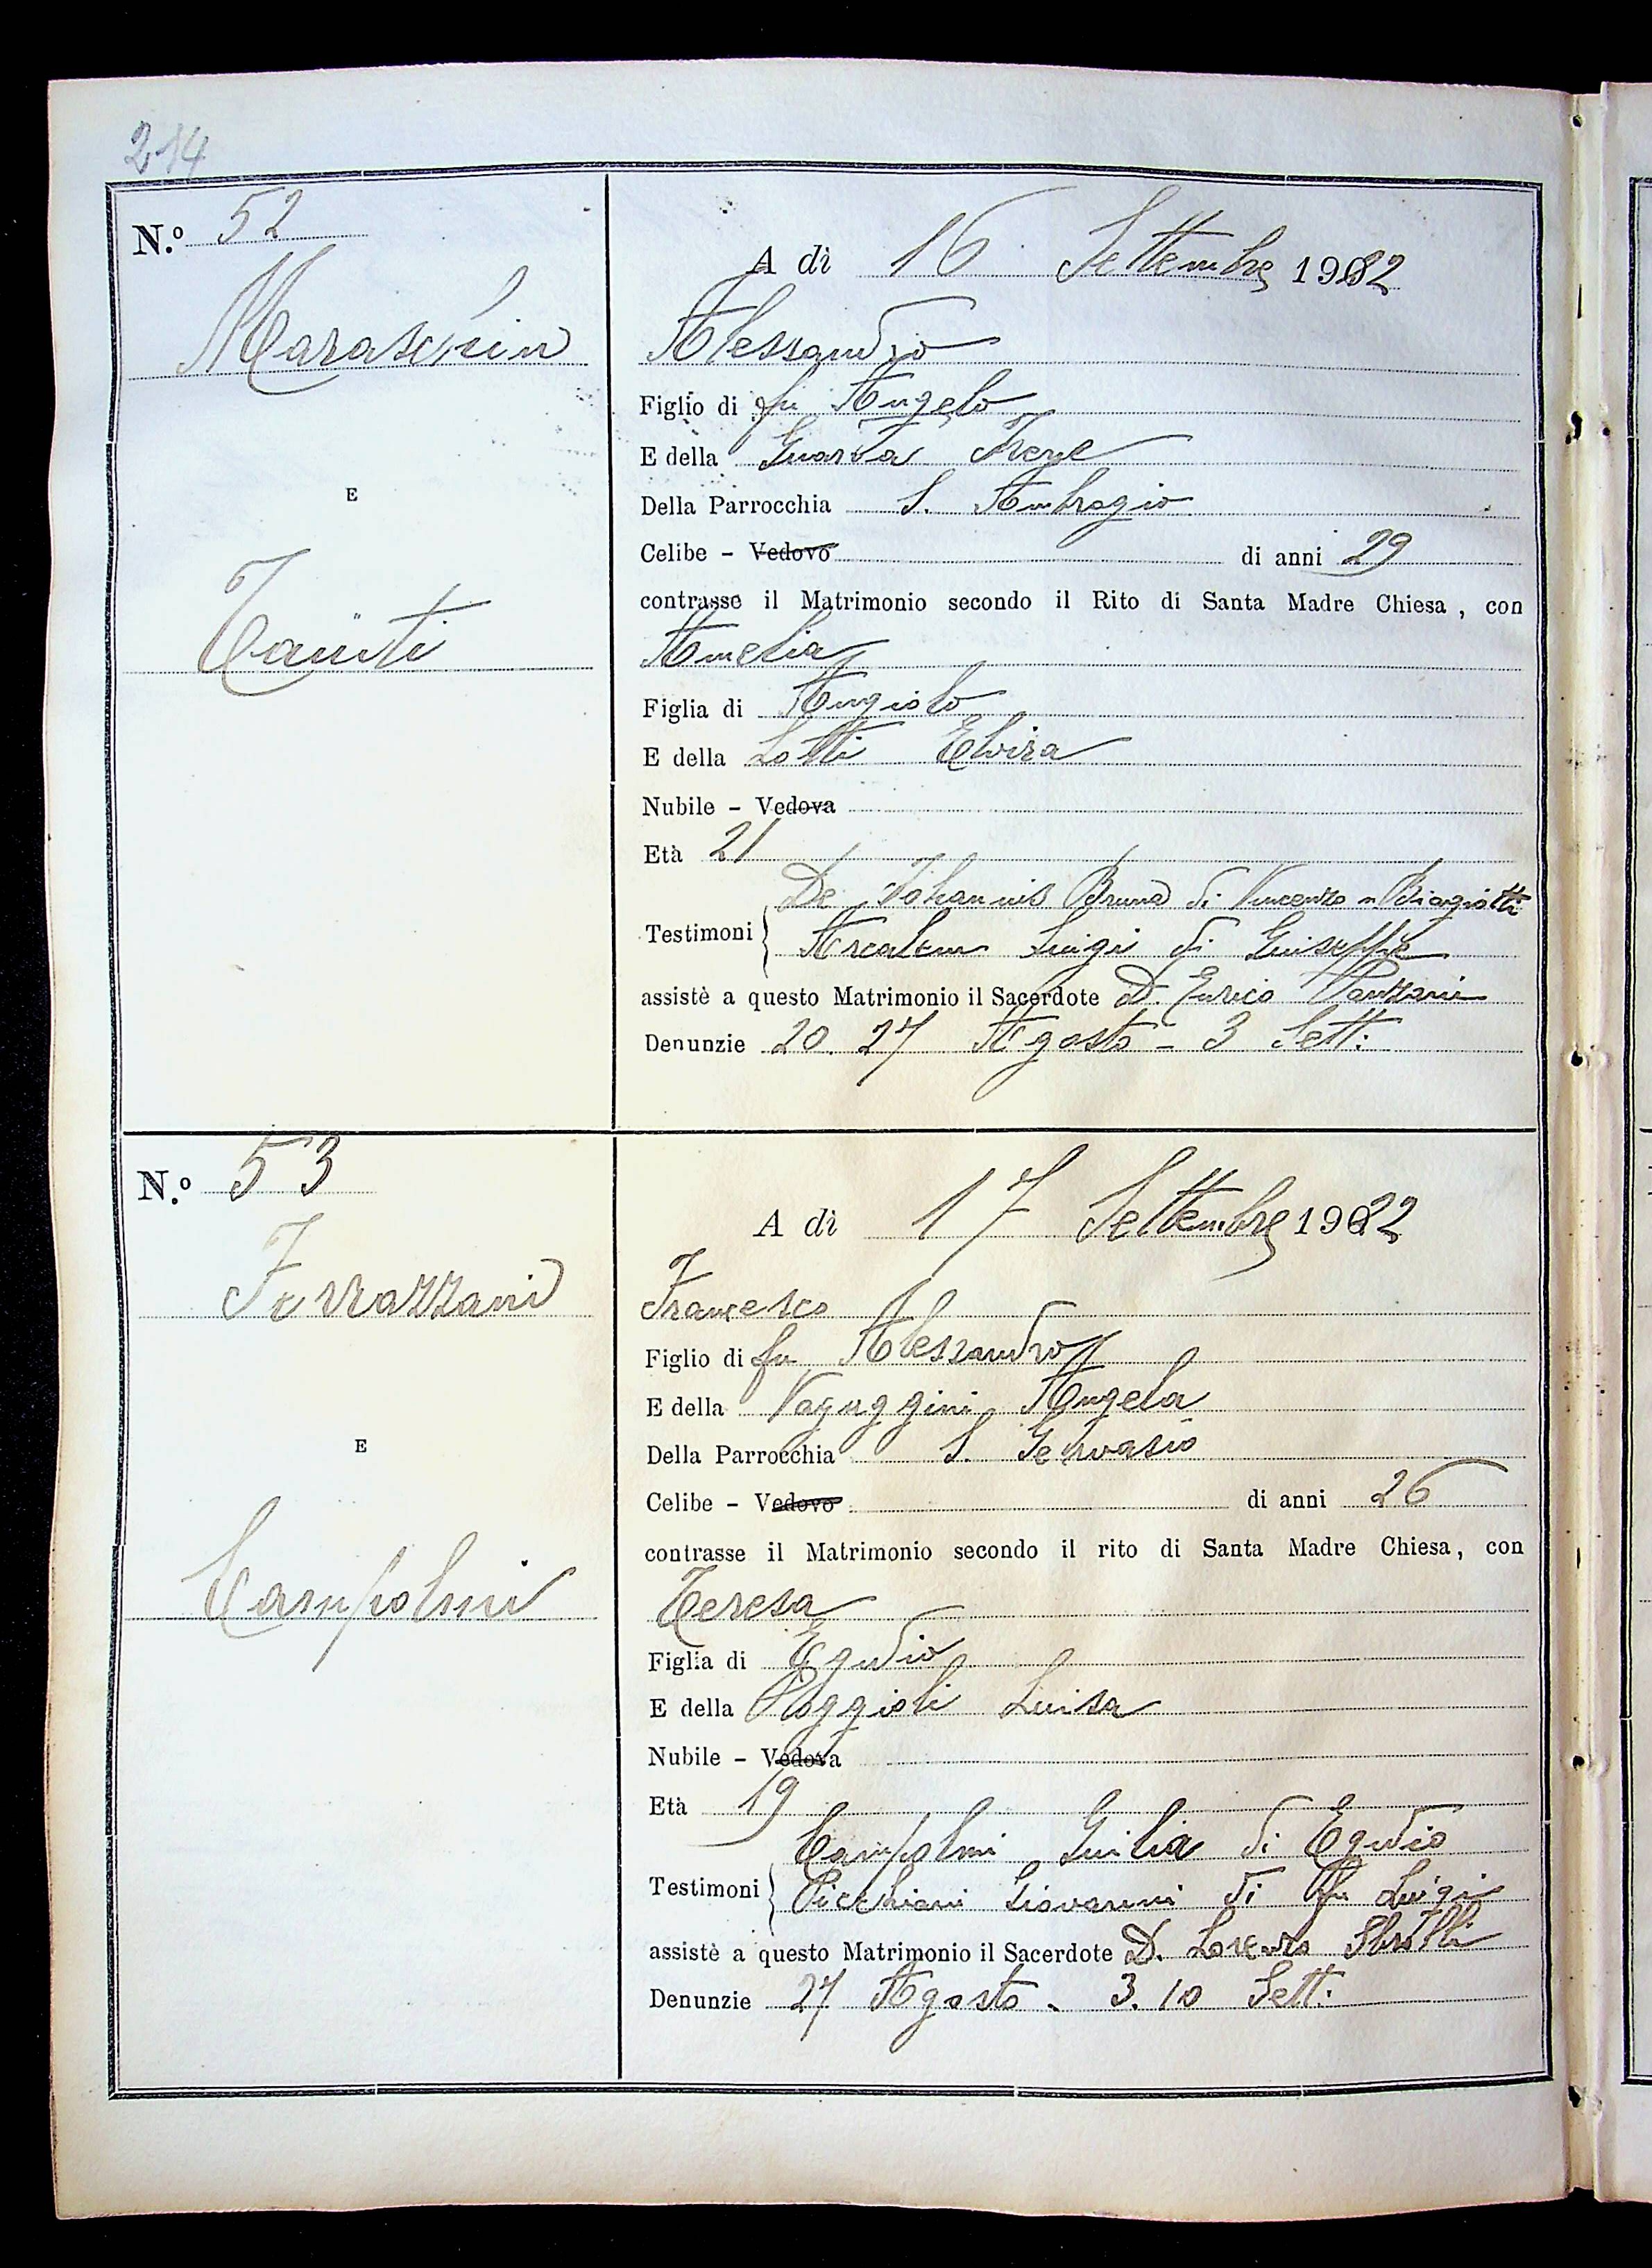 214
N.º 52
A dì 16 Settembre 1922
Maraschin
Alessandro
Figlio di fu Angelo
E della Guarda Irene
Della Parrocchia S. Ambrogio
E
Celibe - Vedovo di anni 29
contrasse il Matrimonio secondo il Rito di Santa Madre Chiesa, con
Taiuti
Amelia
Figlia di Angiolo
E della Lotti Elvira
Nubile - Vedova
Età 21
De Johannis Bruna di Vincenzo n. Biagiotti
Testimoni Luigi di Giuseppe
assistè a questo Matrimonio il Sacerdote D. Enrico
Denunzie 20. 27 Agosto - 3 Sett:
N.º 53
A dì 17 Settembre 1922
Francesco
Figlio di fu Alessandro
E della Vagaggini Angela
Della Parrocchia S. Gervasio
E
Celibe - Vedovo di anni 26
contrasse il Matrimonio secondo il rito di Santa Madre Chiesa, con
Campolmi
Teresa
Figlia di Egidio
E della Poggioli Luisa
Nubile - Vedova
Età 19
Campolmi Giulia di Egidio
Testimoni Picchiani Giovanni di fu Luigi
assistè a questo Matrimonio il Sacerdote D. Lorenzo
Denunzie 27 Agosto - 3. 10 Sett: